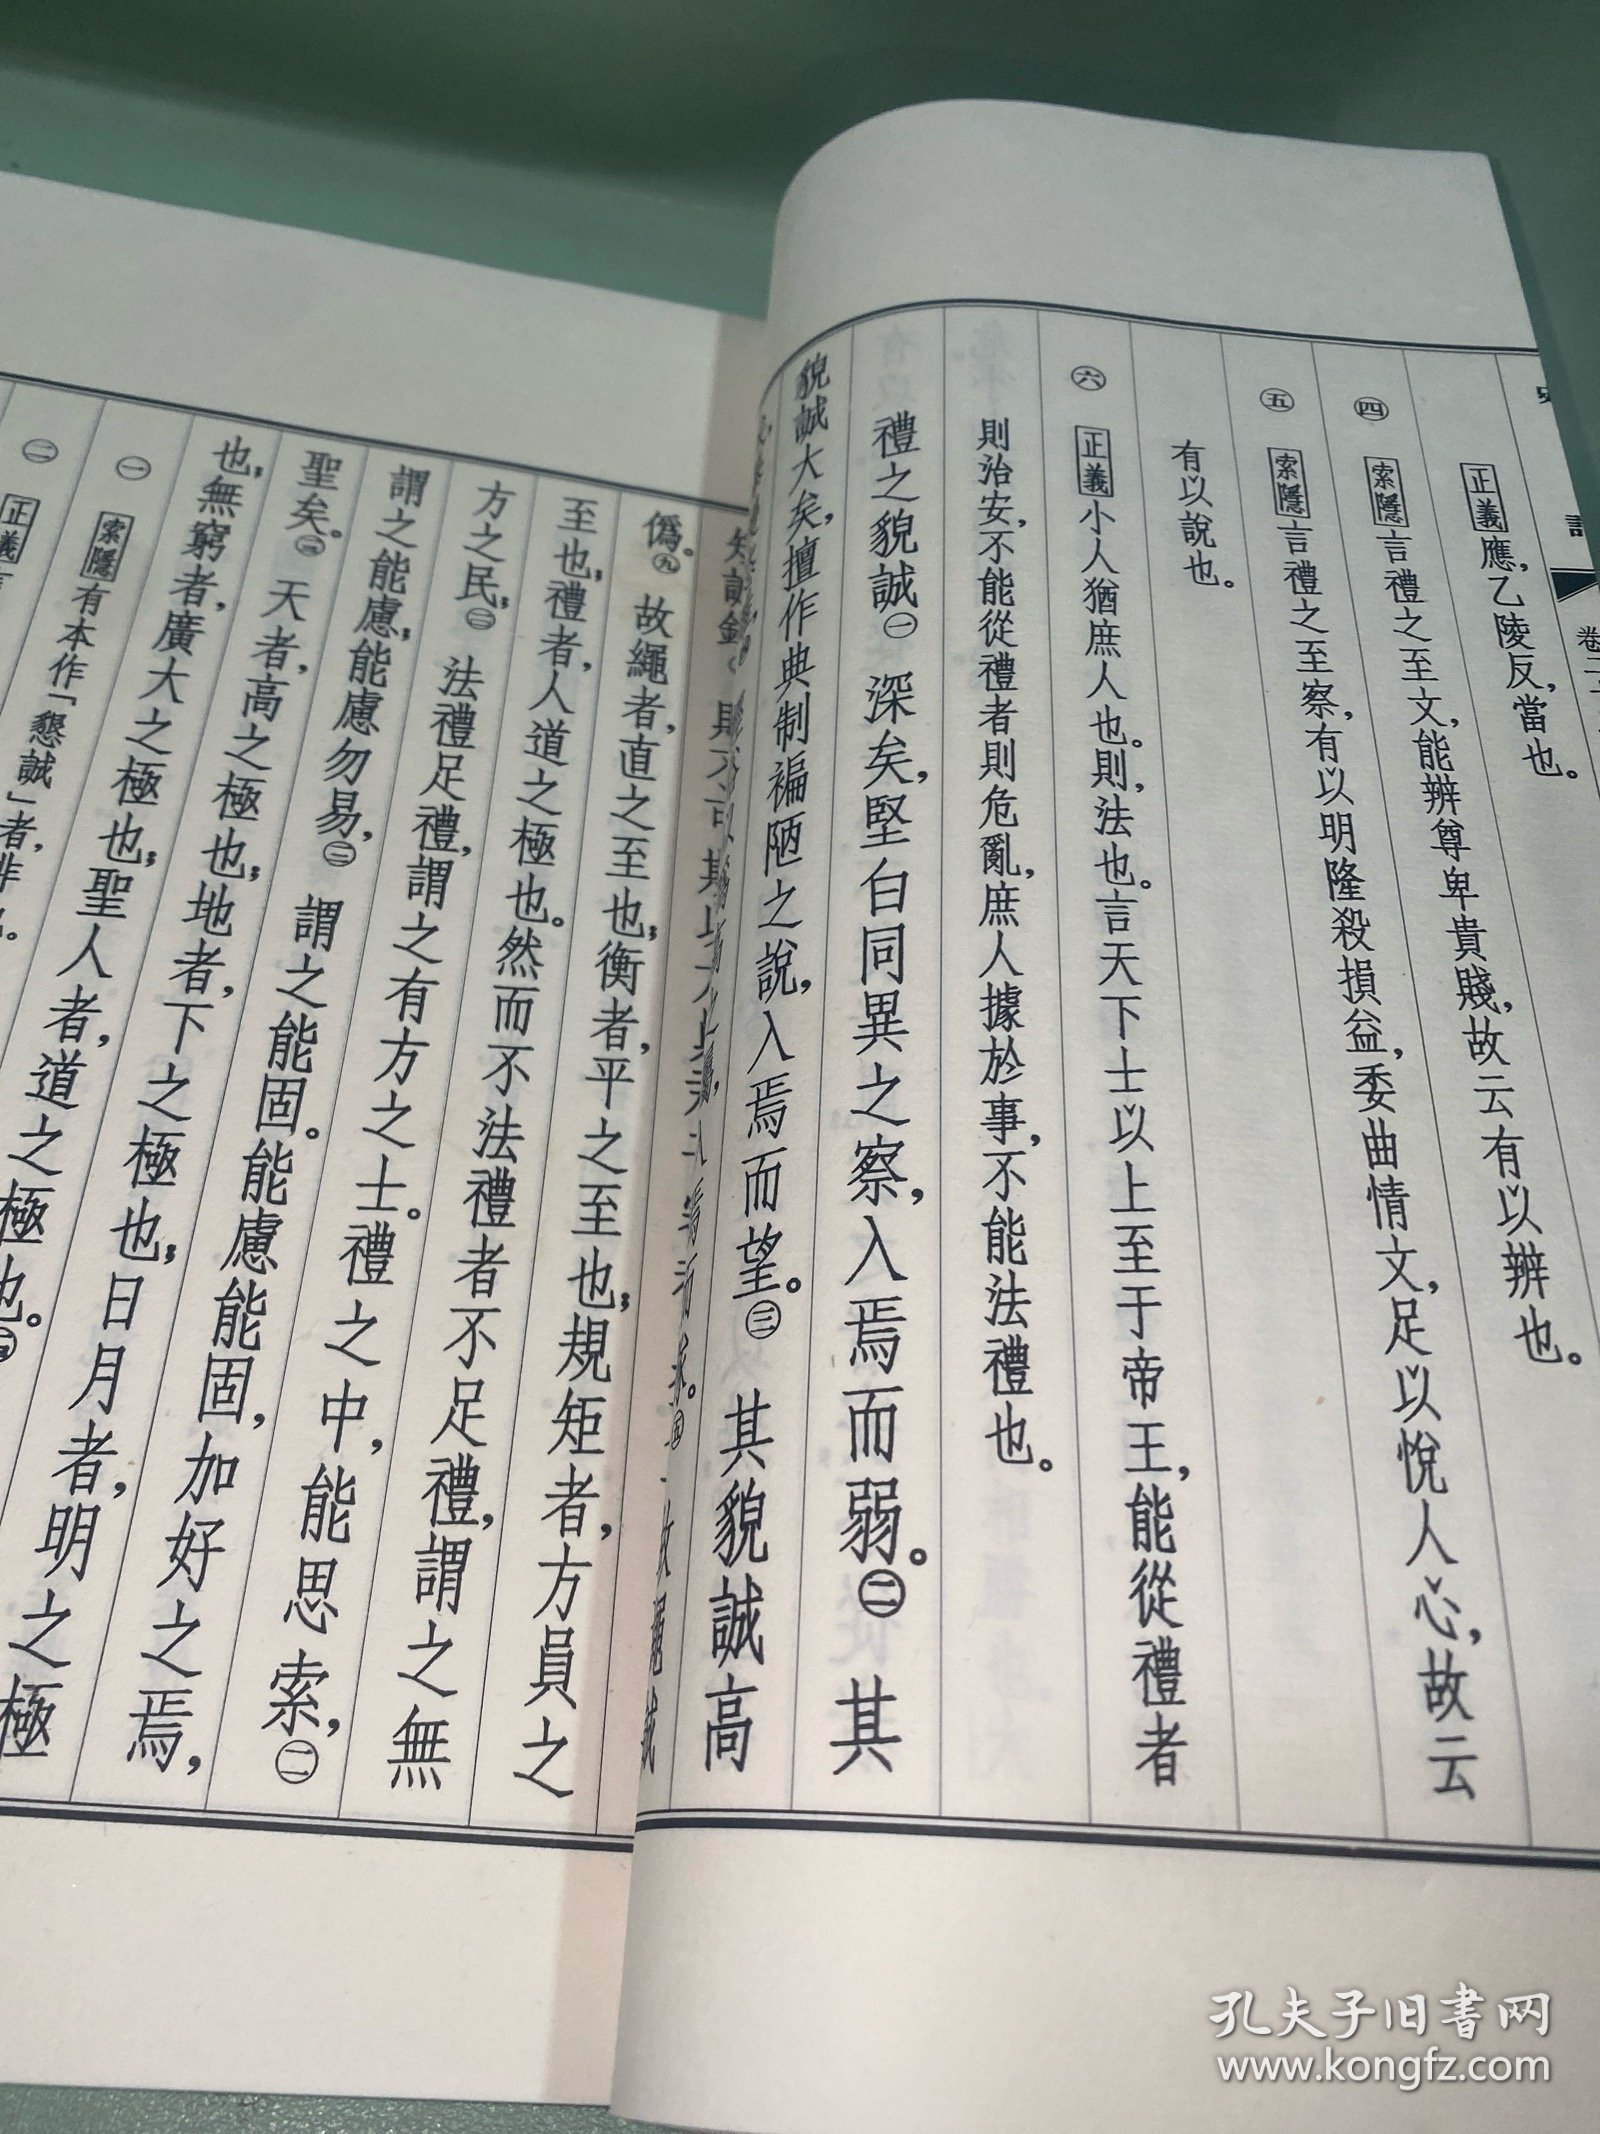 正義應，乙陵反，當也。
㊃ 索隱言禮之至文，能辨尊卑貴賤，故云有以辨也。
㊄ 索隱言禮之至察，有以明隆殺損益，委曲情文，足以悅人心，故云
有以說也。
㊅ 正義小人猶庶人也。則，法也。言天下士以上至于帝王，能從禮者
則治安，不能從禮者則危亂，庶人據於事，不能法禮也。
禮之貌誠㊀深矣，堅白同異之察，入焉而弱。㊁其
貌誠大矣，擅作典制褊陋之說，入焉而望。㊂其貌誠高
偽。㊈故繩者，直之至也；衡者，平之至也；規矩者，方員之
至也；禮者，人道之極也。然而不法禮者不足禮，謂之無
方之民；㊀法禮足禮，謂之有方之士。禮之中，能思索，㊁
謂之能慮；能慮勿易，㊂謂之能固。能慮能固，加好之焉，
聖矣。㊃天者，高之極也；地者，下之極也；日月者，明之極
也；無窮者，廣大之極也；聖人者，道之極也。㊄
㊀ 索隱有本作「懇誠」者，非也。
正義
孔夫子旧書网
www.kongfz.com